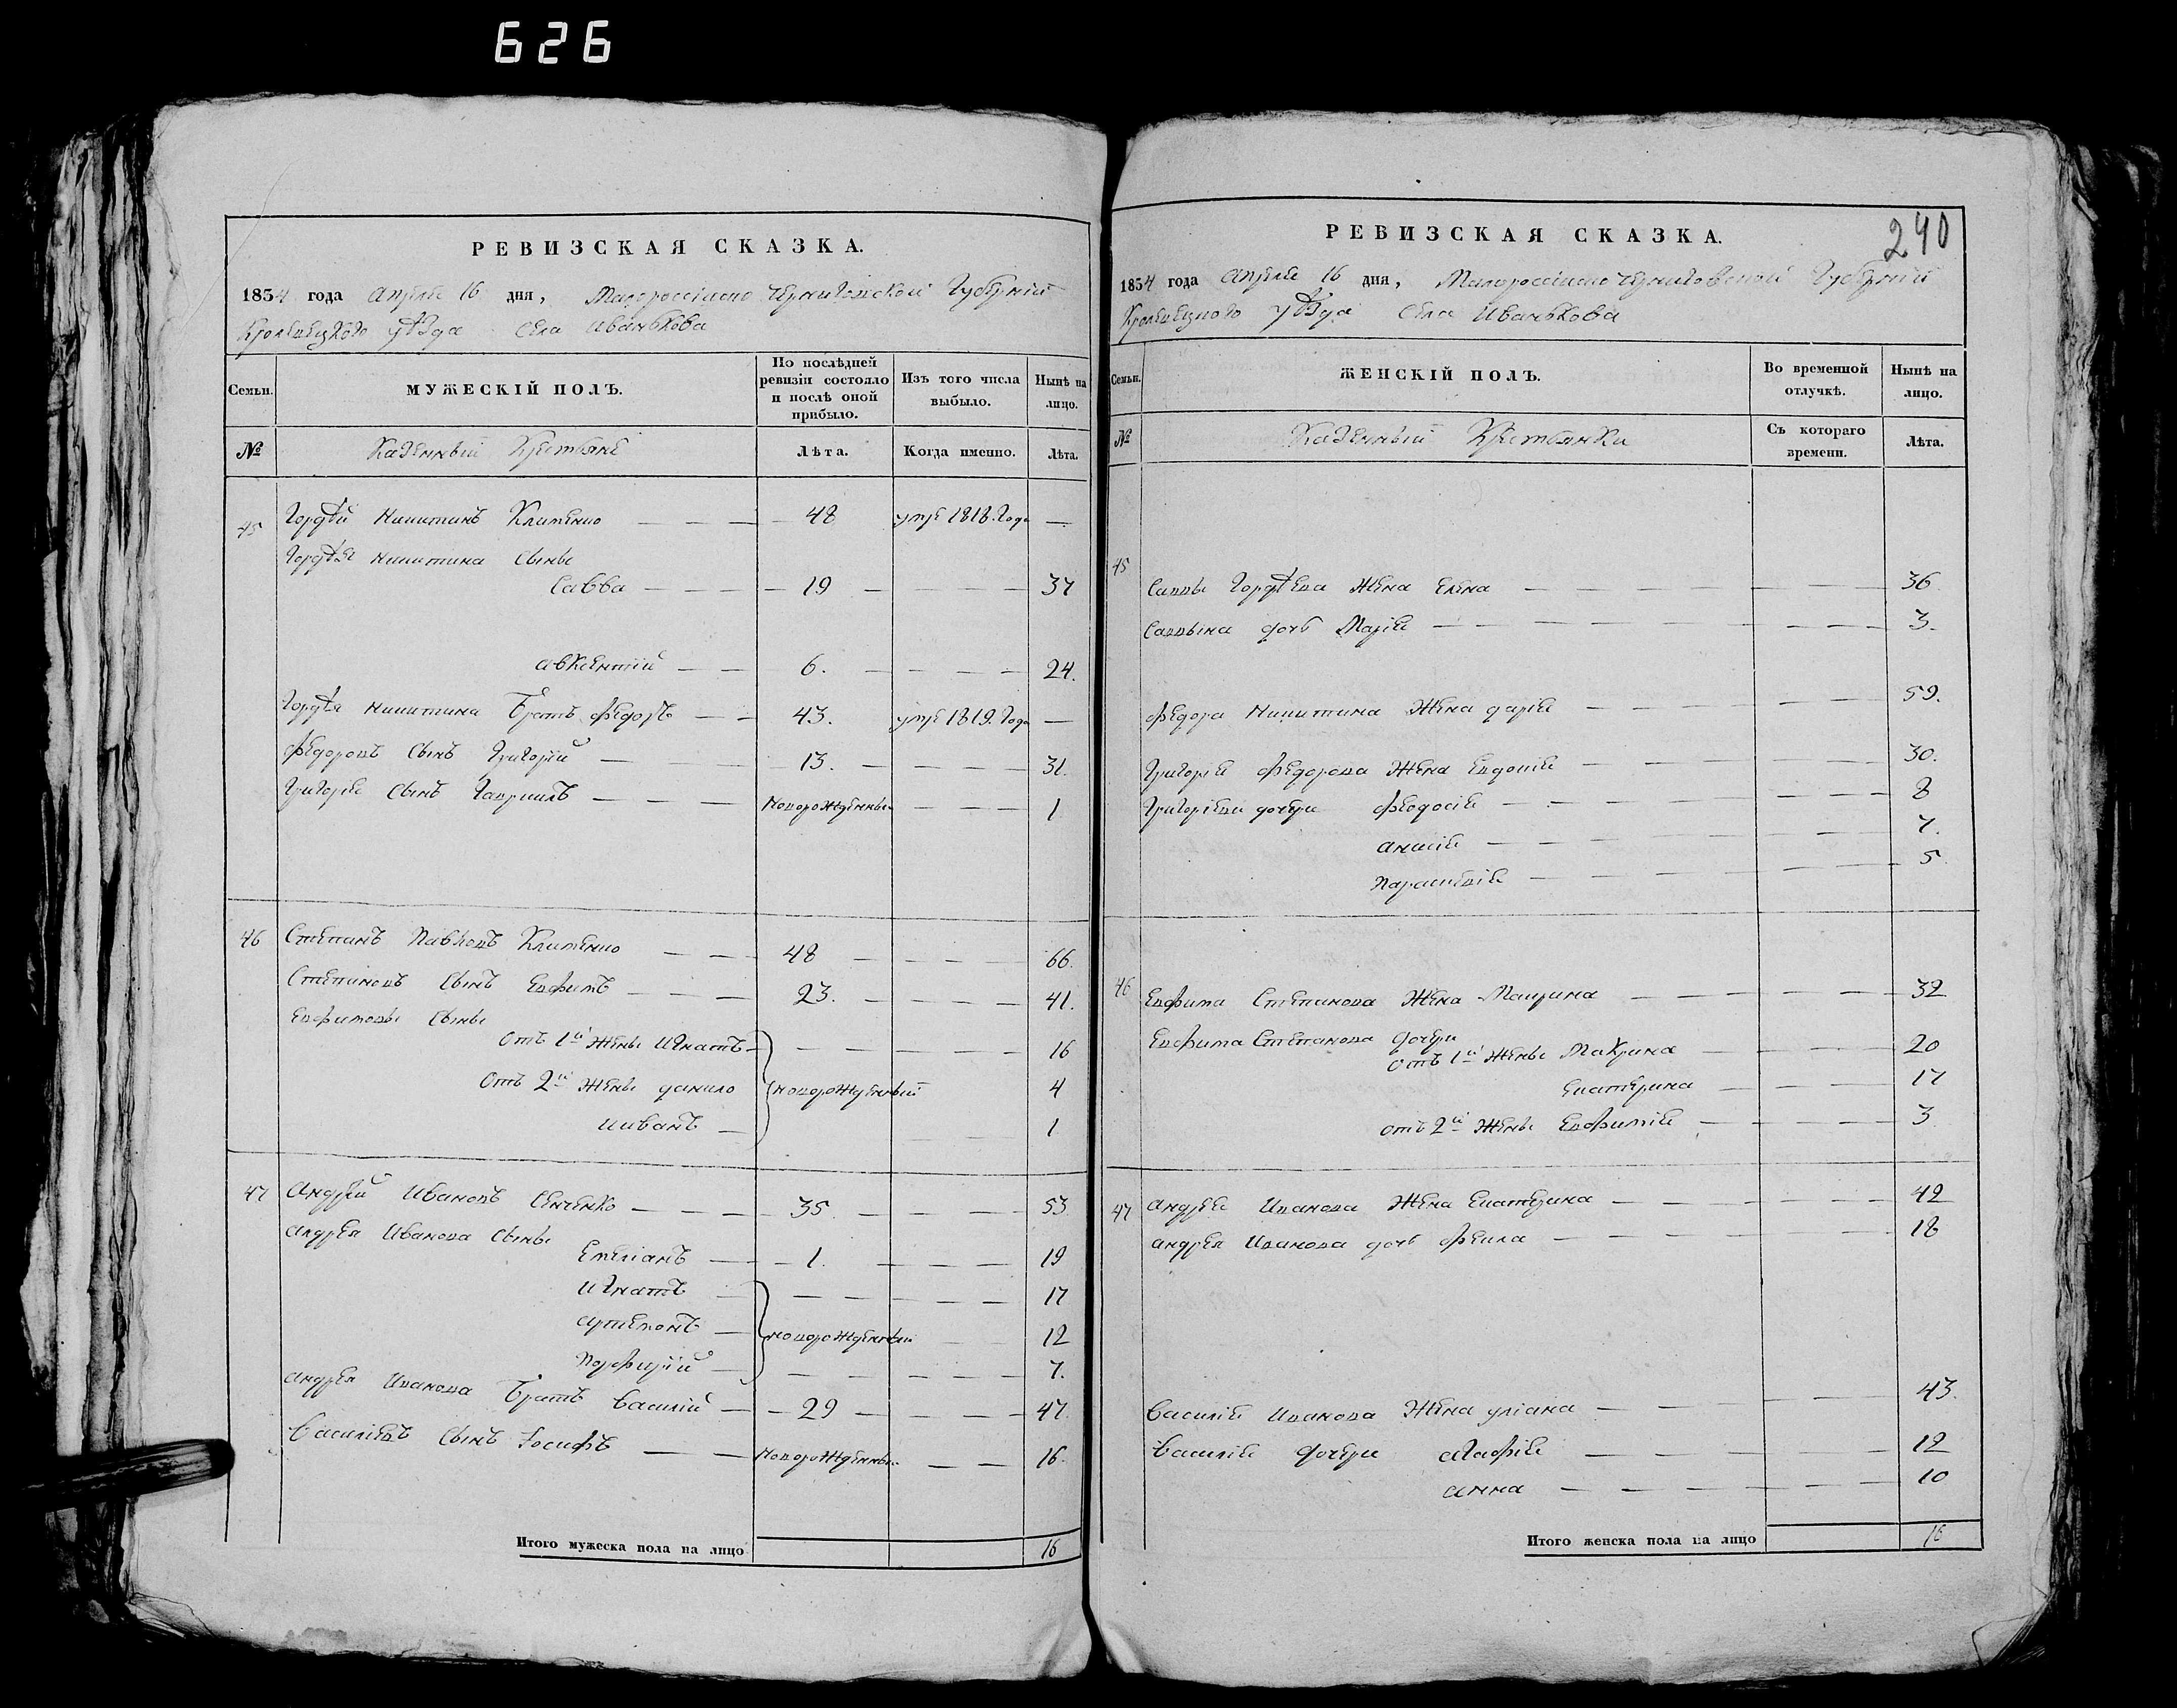 626
РЕВИЗСКАЯ СКАЗКА.
1834 года Апреля 16 дня, Малороссійско Черниговской Губерніи
Кролевецкого уѣзда Села Иванькова
Семьи.
МУЖЕСКІЙ ПОЛЪ.
По послѣдней ревизіи состояло и послѣ оной прибыло.
Изъ того числа выбыло.
Нынѣ на лицо.
№
Казенныи Крестьяне
Лѣта.
Когда именно.
Лѣта.
45 Гордѣй Никитинъ Клименко — 48 умре 1818. Года —
Гордѣя Никитина Сыны
Савва — 19 — 37
Авксентій — 6. — 24.
Гордѣя Никитина Братъ Федоръ — 43. умре 1819. Года —
Федоровъ Сынъ Григорій — 13. — 31.
Григорія Сынъ Гавриилъ — новорожденны — 1
46 Степанъ Павловъ Клименко — 48 — 66.
Степановъ Сынъ Евфимъ — 23. — 41.
Евфимовы Сыны
Отъ 1й Жены Игнатъ — 16
Отъ 2й Жены Данило новорожденныи 4
Иванъ — 1
47 Андрей Ивановъ Сенченко — 35 — 53
Андрея Иванова Сыны
Емеліанъ — 1. — 19
Игнатъ — 17
Артемонъ — новорожденныи 12
Порфирій — 7.
Андрея Иванова Братъ Василій — 29 — 47
Василіевъ Сынъ Іосифъ — новорожденны — 16.
Итого мужеска пола на лицо 16
240
РЕВИЗСКАЯ СКАЗКА.
1834 года Апреля 16 дня, Малороссійско Черниговской Губерніи
Кролевецкого уѣзда Села Иванькова
Семьи.
ЖЕНСКІЙ ПОЛЪ.
Во временной отлучкѣ.
Нынѣ на лицо.
№
Казенныи Крестьянки
Съ котораго времени.
Лѣта.
45 Саввы Гордѣева Жена Елена — 36
Саввина дочь Марія — 3.
Федора Никитина Жена Дарія — 59.
Григорія Федорова Жена Евдокія — 30.
Григоріеви дочери Феодосія — 8
Анисія — 7.
Параскевія — 5
46 Евфима Степанова Жена Марина — 32
Евфима Степанова дочери
Отъ 1й Жены Макрина — 20
Екатерина — 17
отъ 2й Жены Евфимія — 3
47 Андрея Иванова Жена Екатерина — 42
Андрея Иванова дочь Фекла — 18
Василія Иванова Жена Уліана — 43.
Василія дочери Агафія — 12
Анна — 10
Итого женска пола на лицо 16